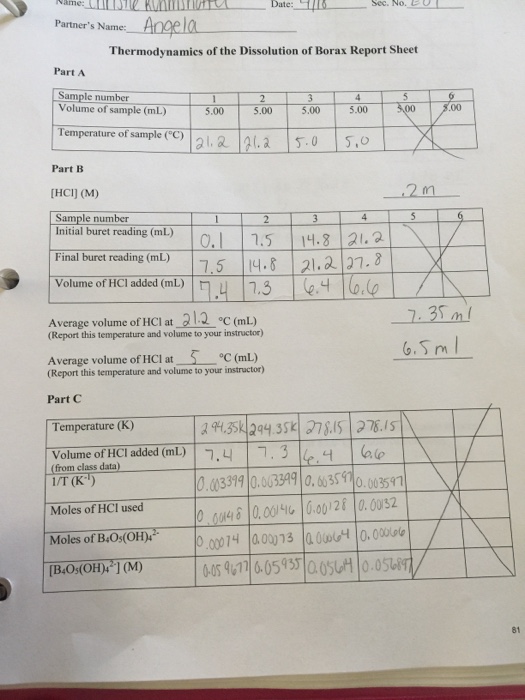 Name: Date: 4/18 Sec. No.
Partner's Name: Angela
Thermodynamics of the Dissolution of Borax Report Sheet
Part A
Sample number 1 2 3 4 5 6
Volume of sample (mL) 5.00 5.00 5.00 5.00 5.00 5.00
Temperature of sample (°C) 21.2 21.2 5.0 5.0
Part B
[HCl] (M) .2 m
Sample number 1 2 3 4 5 6
Initial buret reading (mL) 0.1 7.5 14.8 21.2
Final buret reading (mL) 7.5 14.8 21.2 27.8
Volume of HCl added (mL) 7.4 7.3 6.4 6.6
Average volume of HCl at 21.2 °C (mL) 7.35 ml
(Report this temperature and volume to your instructor)
Average volume of HCl at 5 °C (mL) 6.5 ml
(Report this temperature and volume to your instructor)
Part C
Temperature (K) 294.35k 294.35k 278.15 278.15
Volume of HCl added (mL) 7.4 7.3 6.4 6.6
(from class data)
1/T (K⁻¹) 0.003399 0.003399 0.003597 0.003597
Moles of HCl used 0.00148 0.00146 0.00128 0.00132
Moles of B₄O₅(OH)₄²⁻ 0.00074 0.00073 0.00064 0.00066
[B₄O₅(OH)₄²⁻] (M) 0.05935
81